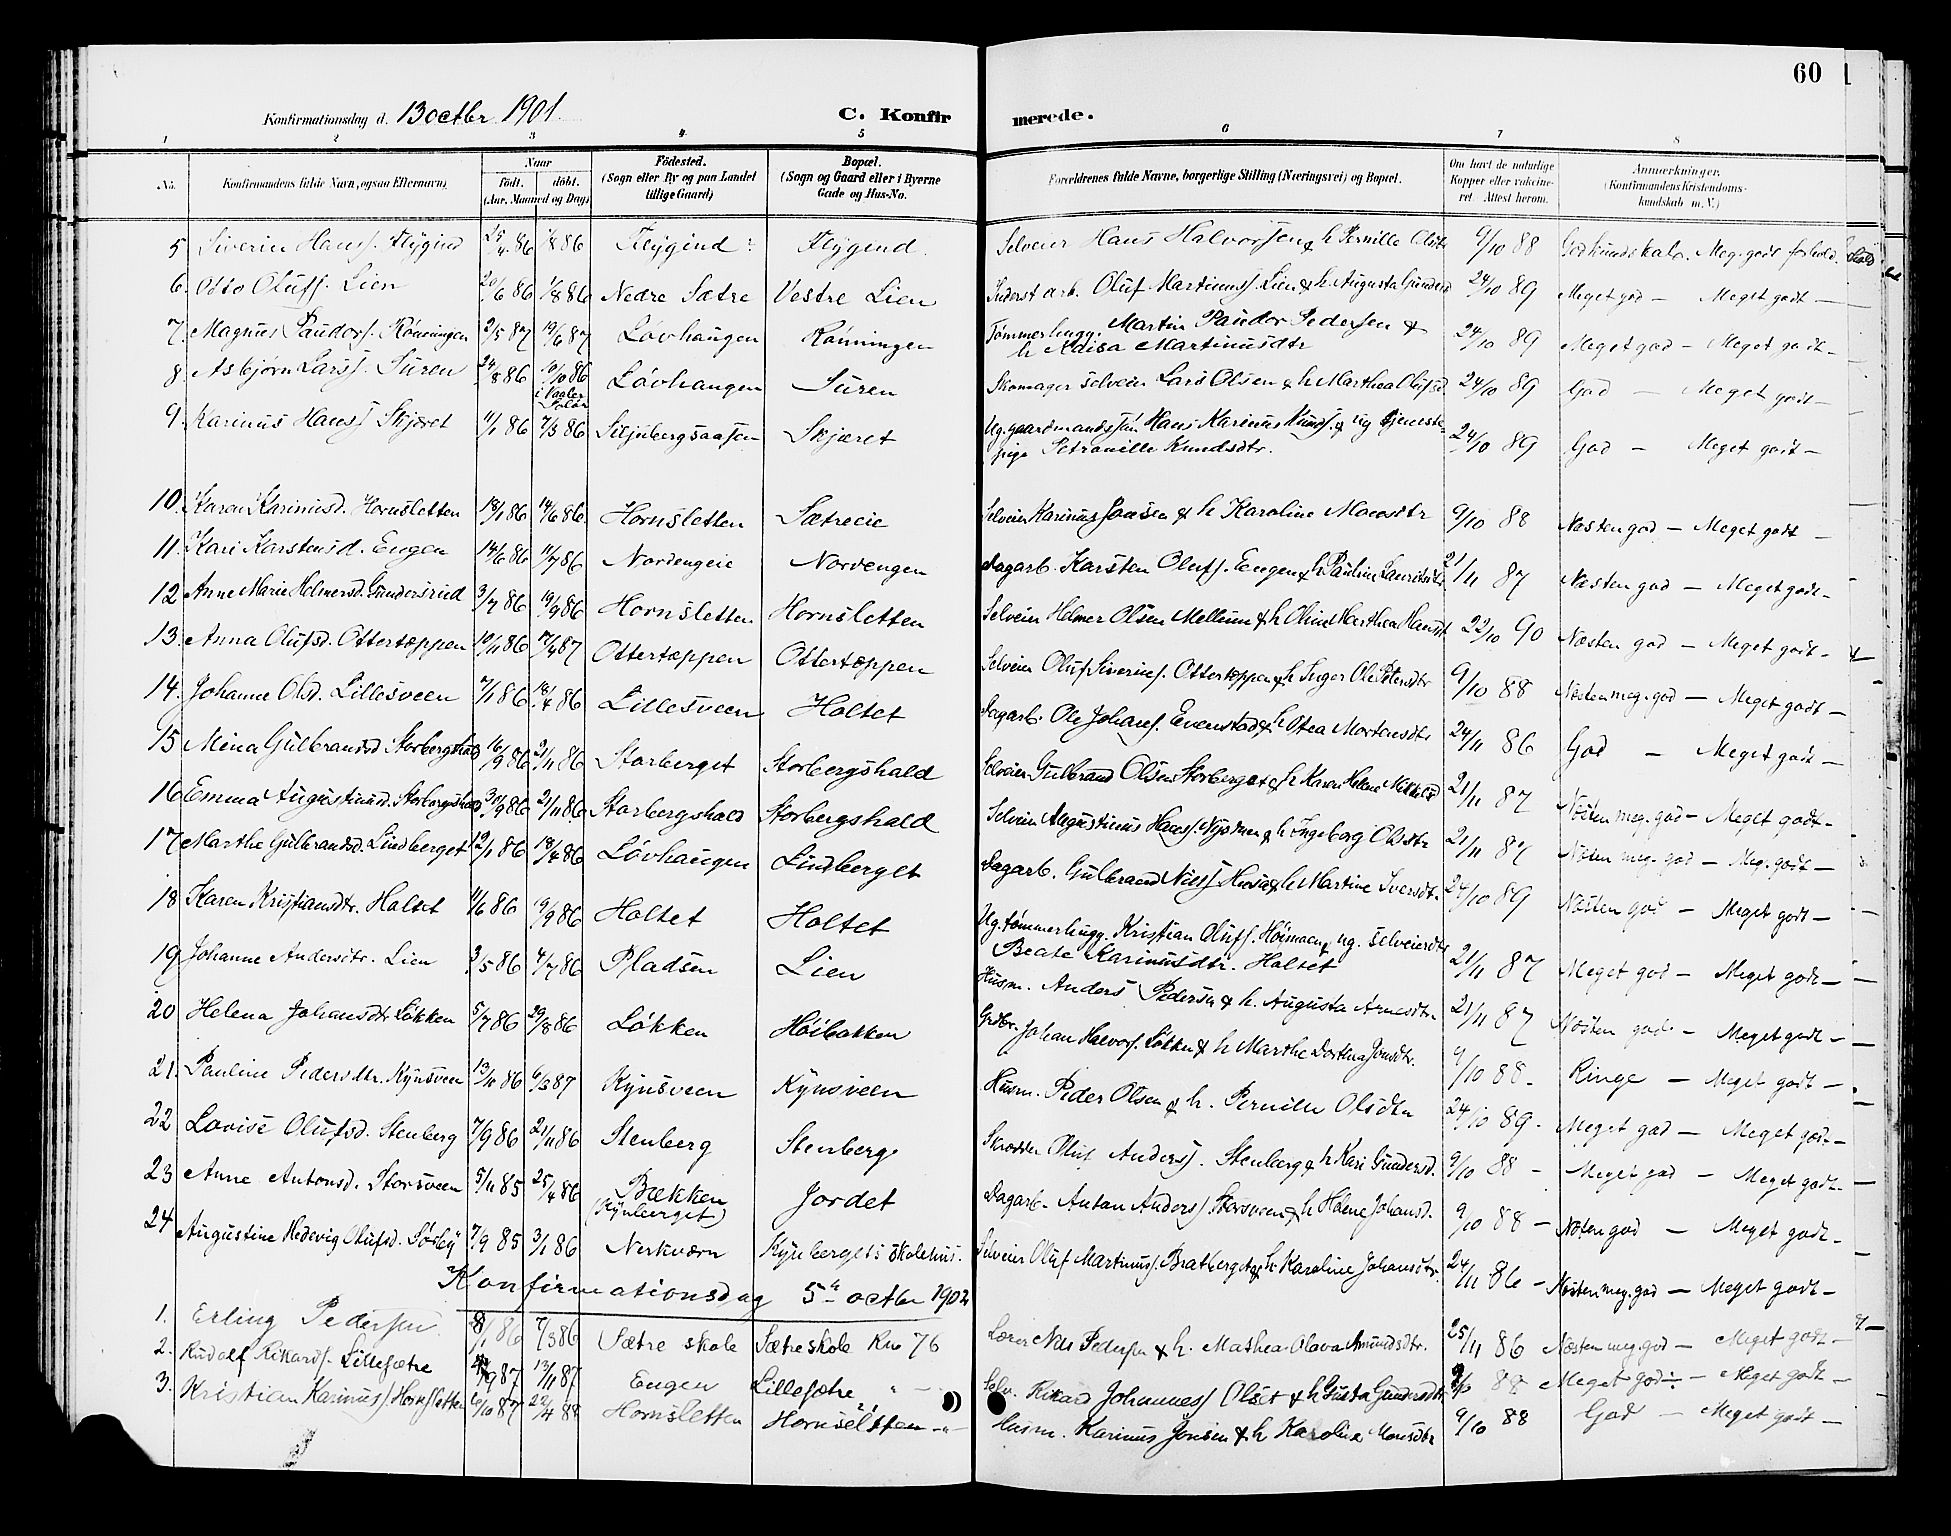 60
Konfirmationsdag d. 13 octbr. 1901. C. Konfirmerede.
1 2 3 4 5 6 7 8
No. Konfirmandens fulde Navn, ogsaa Efternavn. Naar født. døbt. (Aar, Maaned og Dag) Fødested. (Sogn eller By og paa Landet tillige Gaard) Bopæl. (Sogn og Gaard eller i Byerne Gade og Hus-No. Forældrenes fulde Navne, borgerlige Stilling (Næringsvei) og Bopæl. Om havt de naturlige Kopper eller vakcineret. Attest herom. Anmerkninger. (Konfirmandens Kristendomskundskab m. V.)
5 Siverin Hans. Flÿgind 25/4 86 1/8 86 Flÿgind Flÿgind. Selveier Hans Halvorsen & h Pernille Olsdtr 9/10 88 God kundskab. Meg. godt forhold.
6. Otto Olufs. Lien 20/6 86 1/8 86 Nedre Sætre Vestre Lien Inderst arb. Oluf Martinuss. Lien & h. Augusta 24/10 89 Meget god — Meget godt —
7. Magnus Paudors. Rönningen 2/5 87 19/6 87 Lövhaugen Rönningen Tømmerhugg. Martin Paudor Pedersen & h Kaisa Martinusdtr 24/10 89 Meget god — Meget godt —
8. Asbjørn Larss. Suren 24/8 86 10/10 86 i Vaaler Solør Lövhaugen Suren Skomager selveier Lars Olsen & h Marthea Olufsd. 24/10 89 God — Meget godt —
9. Karinus Hanss Skjæret 11/1 86 7/3 86 Siljubergsaasen Skjæret Ug. gaardmandssön Hans Karinus Knuds. & ug tjenestepige Petronille Knudsdtr. 24/10 89 God — Meget godt —
10. Karen Karinusd. Hornsletten 18/1 86 14/6 86 Hornsletten Sætreeie Selveier Karinus Jonsen & h Karoline Monsdtr 9/10 88 Næsten god — Meget godt —
11. Kari Karstensd. Engen 14/6 86 11/7 86 Nordengeie Nordengen Dagarb. Karsten Olufs. Engen & h Pauline Lauritsdtr 21/11 87 Næsten god — Meget godt —
12 Anne Marie Helmersd. Gundersrud 3/7 86 19/9 86 Hornsletten Hornsletten Selveier Helmer Olsen Mellum & h Oline Marthea Hansdt. 22/10 90 Næsten god — Meget godt —
13. Anna Olufsd. Ottertoppen 10/11 86 7/4 87 Ottertoppen Ottertoppen Selveier Oluf Siverins. Ottertoppen & h Inger Petersdtr 9/10 88 Næsten meg. god — Meget godt —
14. Johanne Olsd. Lillesveen 7/1 86 18/4 86 Lillesveen Holtet Dagarb. Ole Johans. Evenstad & h Otea Mortensdtr 24/11 86 God — Meget godt —
15 Mina Gulbrandsd. Storbergshald 16/9 86 21/11 86 Storberget Storbergshald Selveier Gulbrand Olsen Storberget & h Karen Helene 21/11 87 Næsten meg. god — Meget godt —
16 Emma Augustinusd. Storbergshald 30/9 86 21/11 86 Storbergshald Storbergshald Selveier Augustinus Hanss. Nystuen & h Ingeborg Olsdtr 21/11 87 Næsten meg. god — Meg. godt —
17 Marthe Gulbrandsd. Lindberget 12/1 86 18/4 86 Lövhaugen Lindberget Dagarb. Gulbrand Nilss & h Martine Iversdtr. 24/10 89 Næsten god — Meget godt —
18 Karen Kristiansdtr. Holtet 11/6 86 19/9 86 Holtet Holtet Ug. tømmerhugg. Kristian Olufs. & ug. selveierdtr Beate Karinusdtr. Holtet 21/11 87 Meget god — Meget godt —
19 Johanne Andersdtr. Lien 3/5 86 4/7 86 Pladsen Lien Husm. Anders Pedersen & h. Augusta Arnesdtr 21/11 87 Næsten god — Meget godt —
20 Helena Johansdtr Løkken 5/7 86 29/8 86 Løkken Höibakken Grdbr. Johan Halvors. Løkken & h Marthe Dorthea Jonsdtr. 9/10 88 — Ringe — Meget godt —
21. Pauline Pedersdtr. Kÿnsveen 13/11 86 6/3 87 Kÿnsveen Kÿnsveen Husm. Peder Olsen & h. Pernille Olsdtr 24/10 89 — Meget god — Meget godt —
22 Lovise Olufsd. Stenberg 7/9 86 21/11 86 Stenberg Stenberg Skrædder Oluf Anderss. Stenberg & h Kari Gundersd. 9/10 88 — Meget god — Meget godt —
23 Anne Antonsd. Storsveen 5/11 85 25/4 86 Bækken (Kynberget) Jordet Dagarb. Anton Anderss. Storsveen & h Helene Johansd. 9/10 88 — Næsten god — Meget godt —
24 Augustine Hedevig Olufsd. Sörby 7/9 85 3/1 86 Nerkværn Kynbergets skolehus. Selveier Oluf Martinuss. Bratberget & h Karoline Johansdtr. 24/11 86 — Næsten meg. god — Meget godt —
Konfirmationsdag 5te octbr 1902
1. Erling Pedersen 8/1 86 7/3 86 Sætre skole Sætre skole Kno 76 Lærer Nils Pedersen & h. Mathea Olava Amundsdtr. 25/11 86 Næsten meg. god — Meget godt —
2. Rudolf Rikards. Lillesætre 9 87 13/11 87 Engen Lillesætre Selv. Rikard Johanness Olset & h Gusta Gundersdtr 88 Meget god — Meget godt —
3. Kristian Karinuss. Hornsletten 6/10 87 22/4 88 Hornsletten Hornsletten Husm. Karinus Jonsen & h Karoline Monsdtr 9/10 88 God — Meget godt —